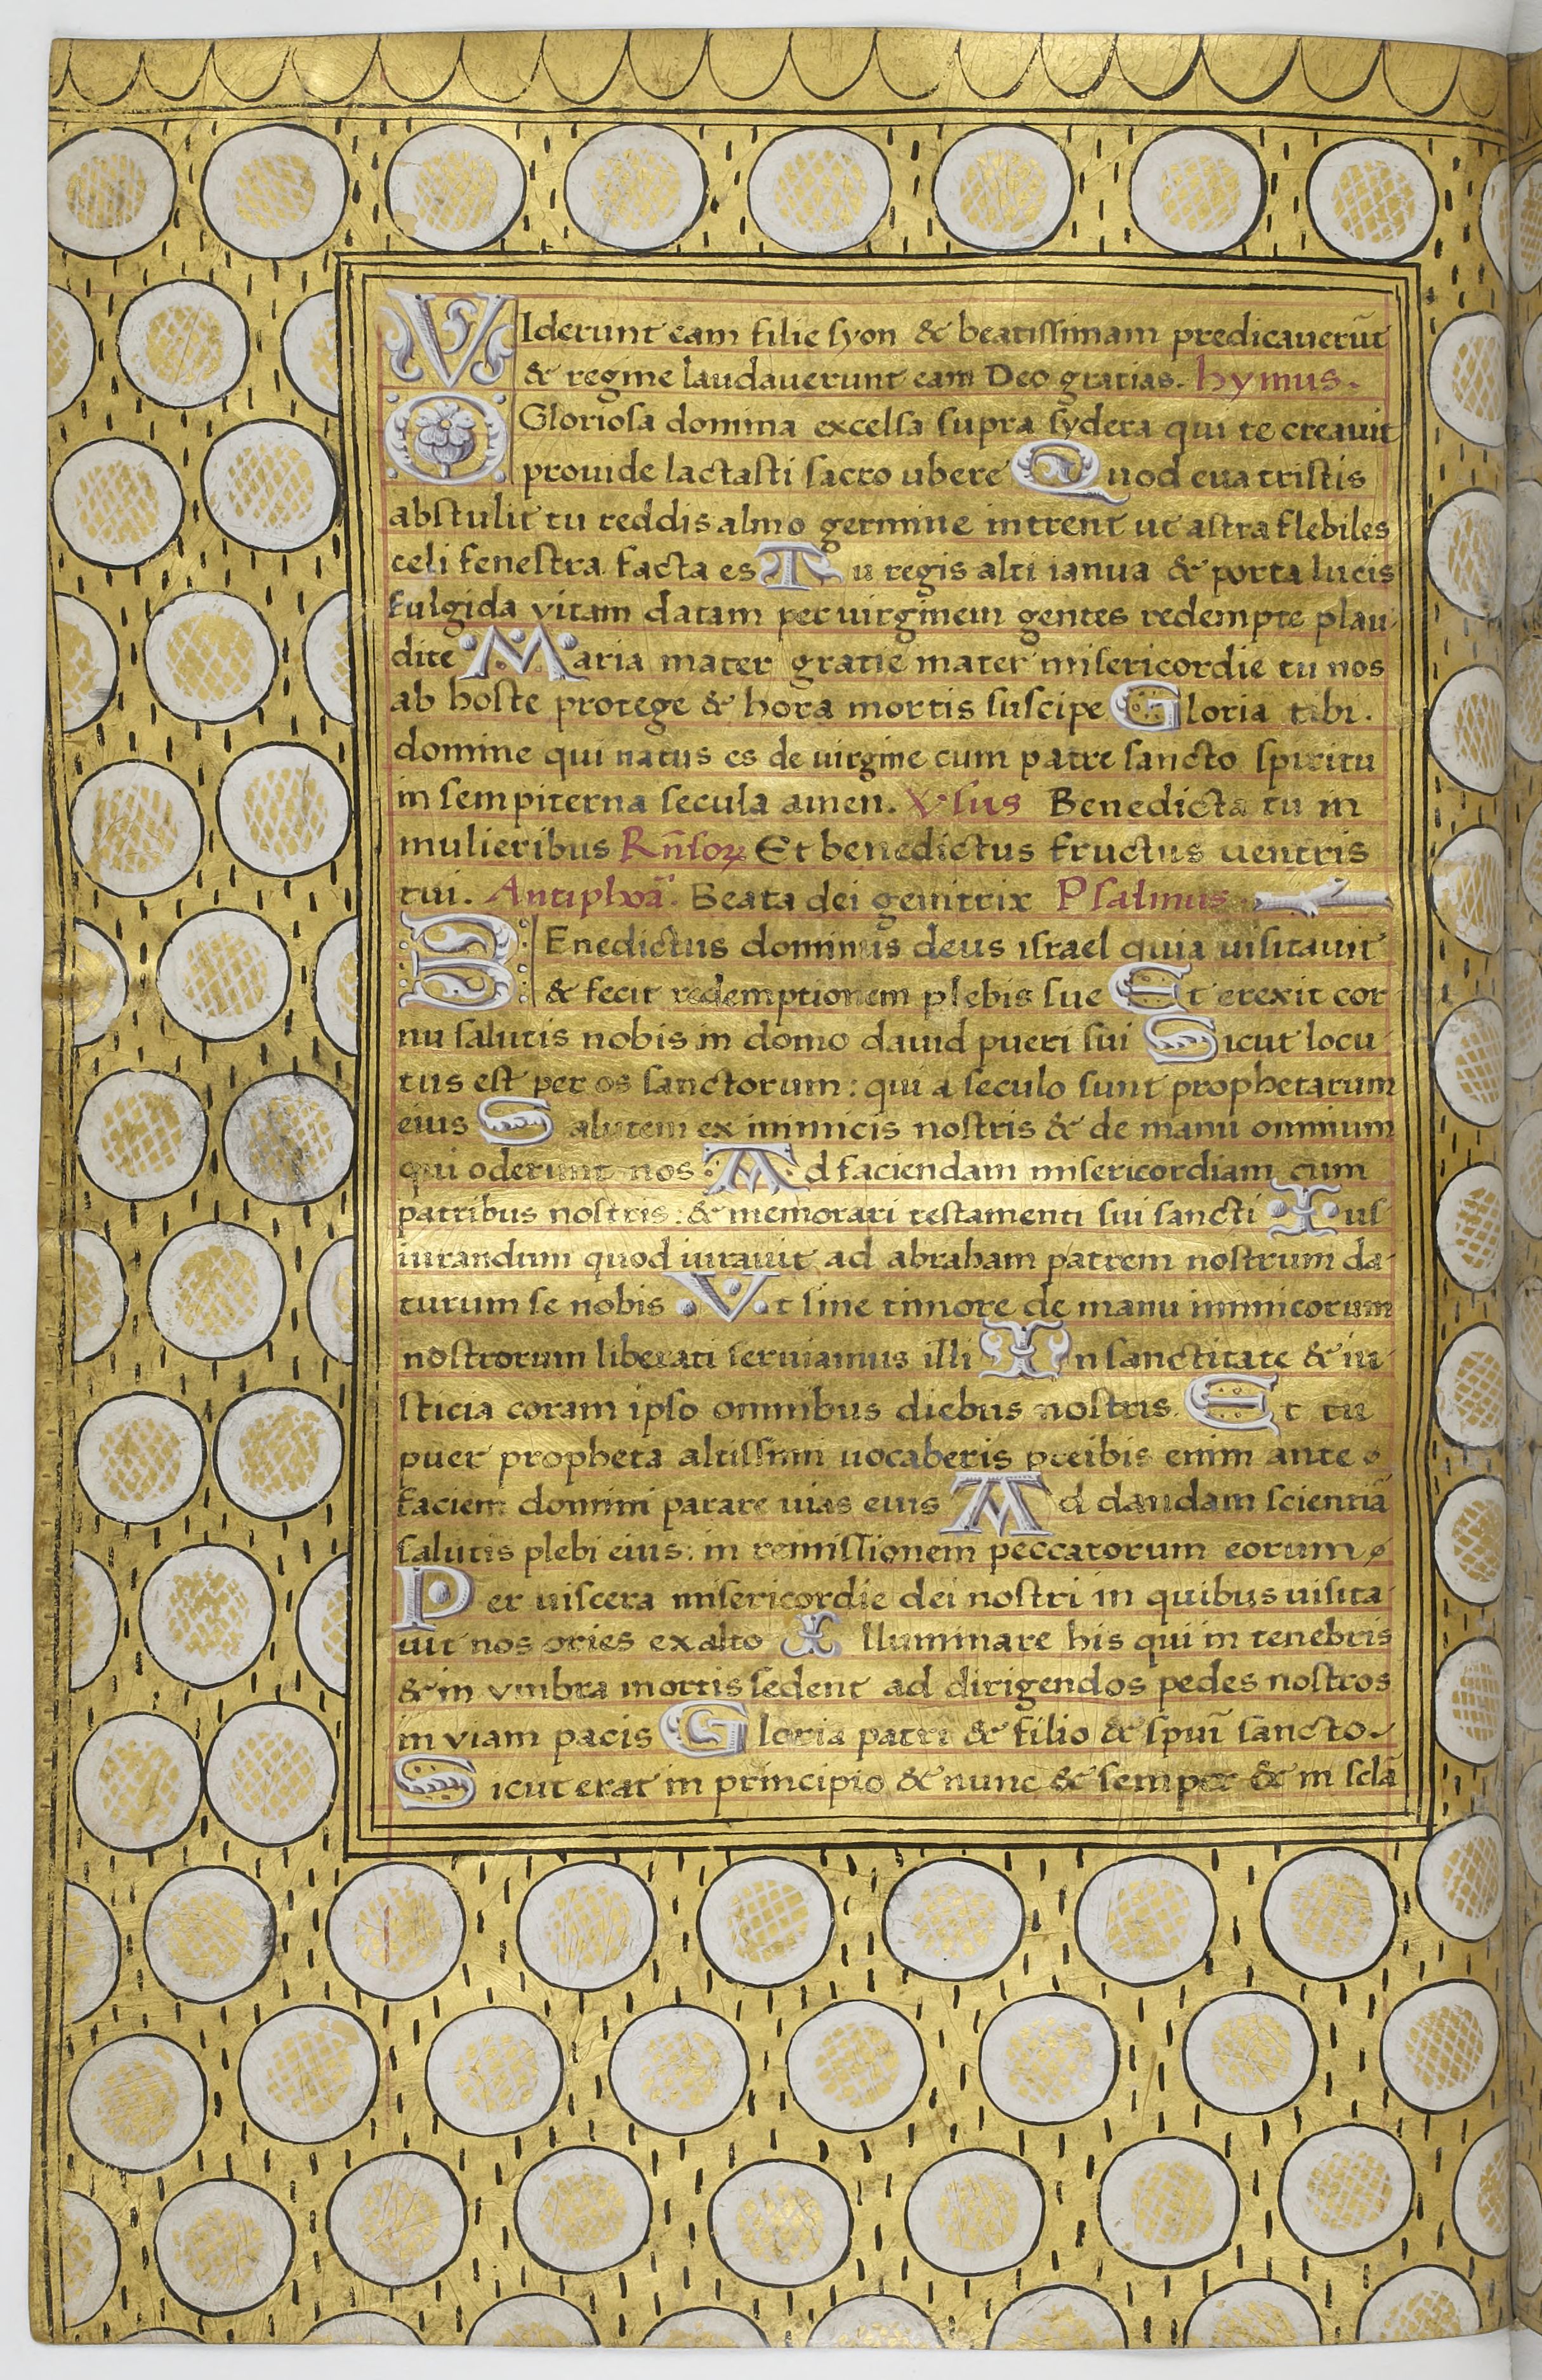 VIderunt eam filie syon & beatissimam predicauerūt
& regine laudauerunt eam Deo gratias. hymus.
O Gloriosa domina excelsa supra sydera qui te creauit
prouide lactasti sacro ubere Quod eua tristis
abstulit tu reddis almo germine intrent ut astra flebiles
celi fenestra facta es Tu regis alti ianua & porta lucis
fulgida vitam datam per uirginem gentes redempte plau-
dite Maria mater gratie mater misericordie tu nos
ab hoste protege & hora mortis suscipe Gloria tibi.
domine qui natus es de uirgine cum patre sancto spiritu
in sempiterna secula amen. V̓sus Benedicta tu in
mulieribus Rn̄soꝝ Et benedictus fructus uentris
tui. Antiphoā. Beata dei genitrix Psalmus
BEnedictus dominus deus israel quia uisitauit
& fecit redemptionem plebis sue Et erexit cor
nu salutis nobis in domo dauid pueri sui Sicut locu-
tus est per os sanctorum: qui a seculo sunt prophetarum
eius Salutem ex inimicis nostris & de manu omnium
qui oderunt nos Ad faciendam misericordiam cum
patribus nostris: & memorari testamenti sui sancti Ius
iurandum quod iurauit ad abraham patrem nostrum da-
turum se nobis Vt sine timore de manu inimicorum
nostrorum liberati seruiamus illi In sanctitate & iu-
sticia coram ipso omnibus diebus nostris. Et tu
puer propheta altissimi uocaberis preibis enim ante
faciem domini parare uias eius Ad dandam scientiā
salutis plebi eius: in remissionem peccatorum eorum
Per uiscera misericordie dei nostri in quibus uisita-
uit nos ories ex alto Illuminare his qui in tenebris
& in vmbra mortis sedent ad dirigendos pedes nostros
in viam pacis Gloria patri & filio & spuī sancto.
Sicut erat in principio & nunc & semper & in sclā